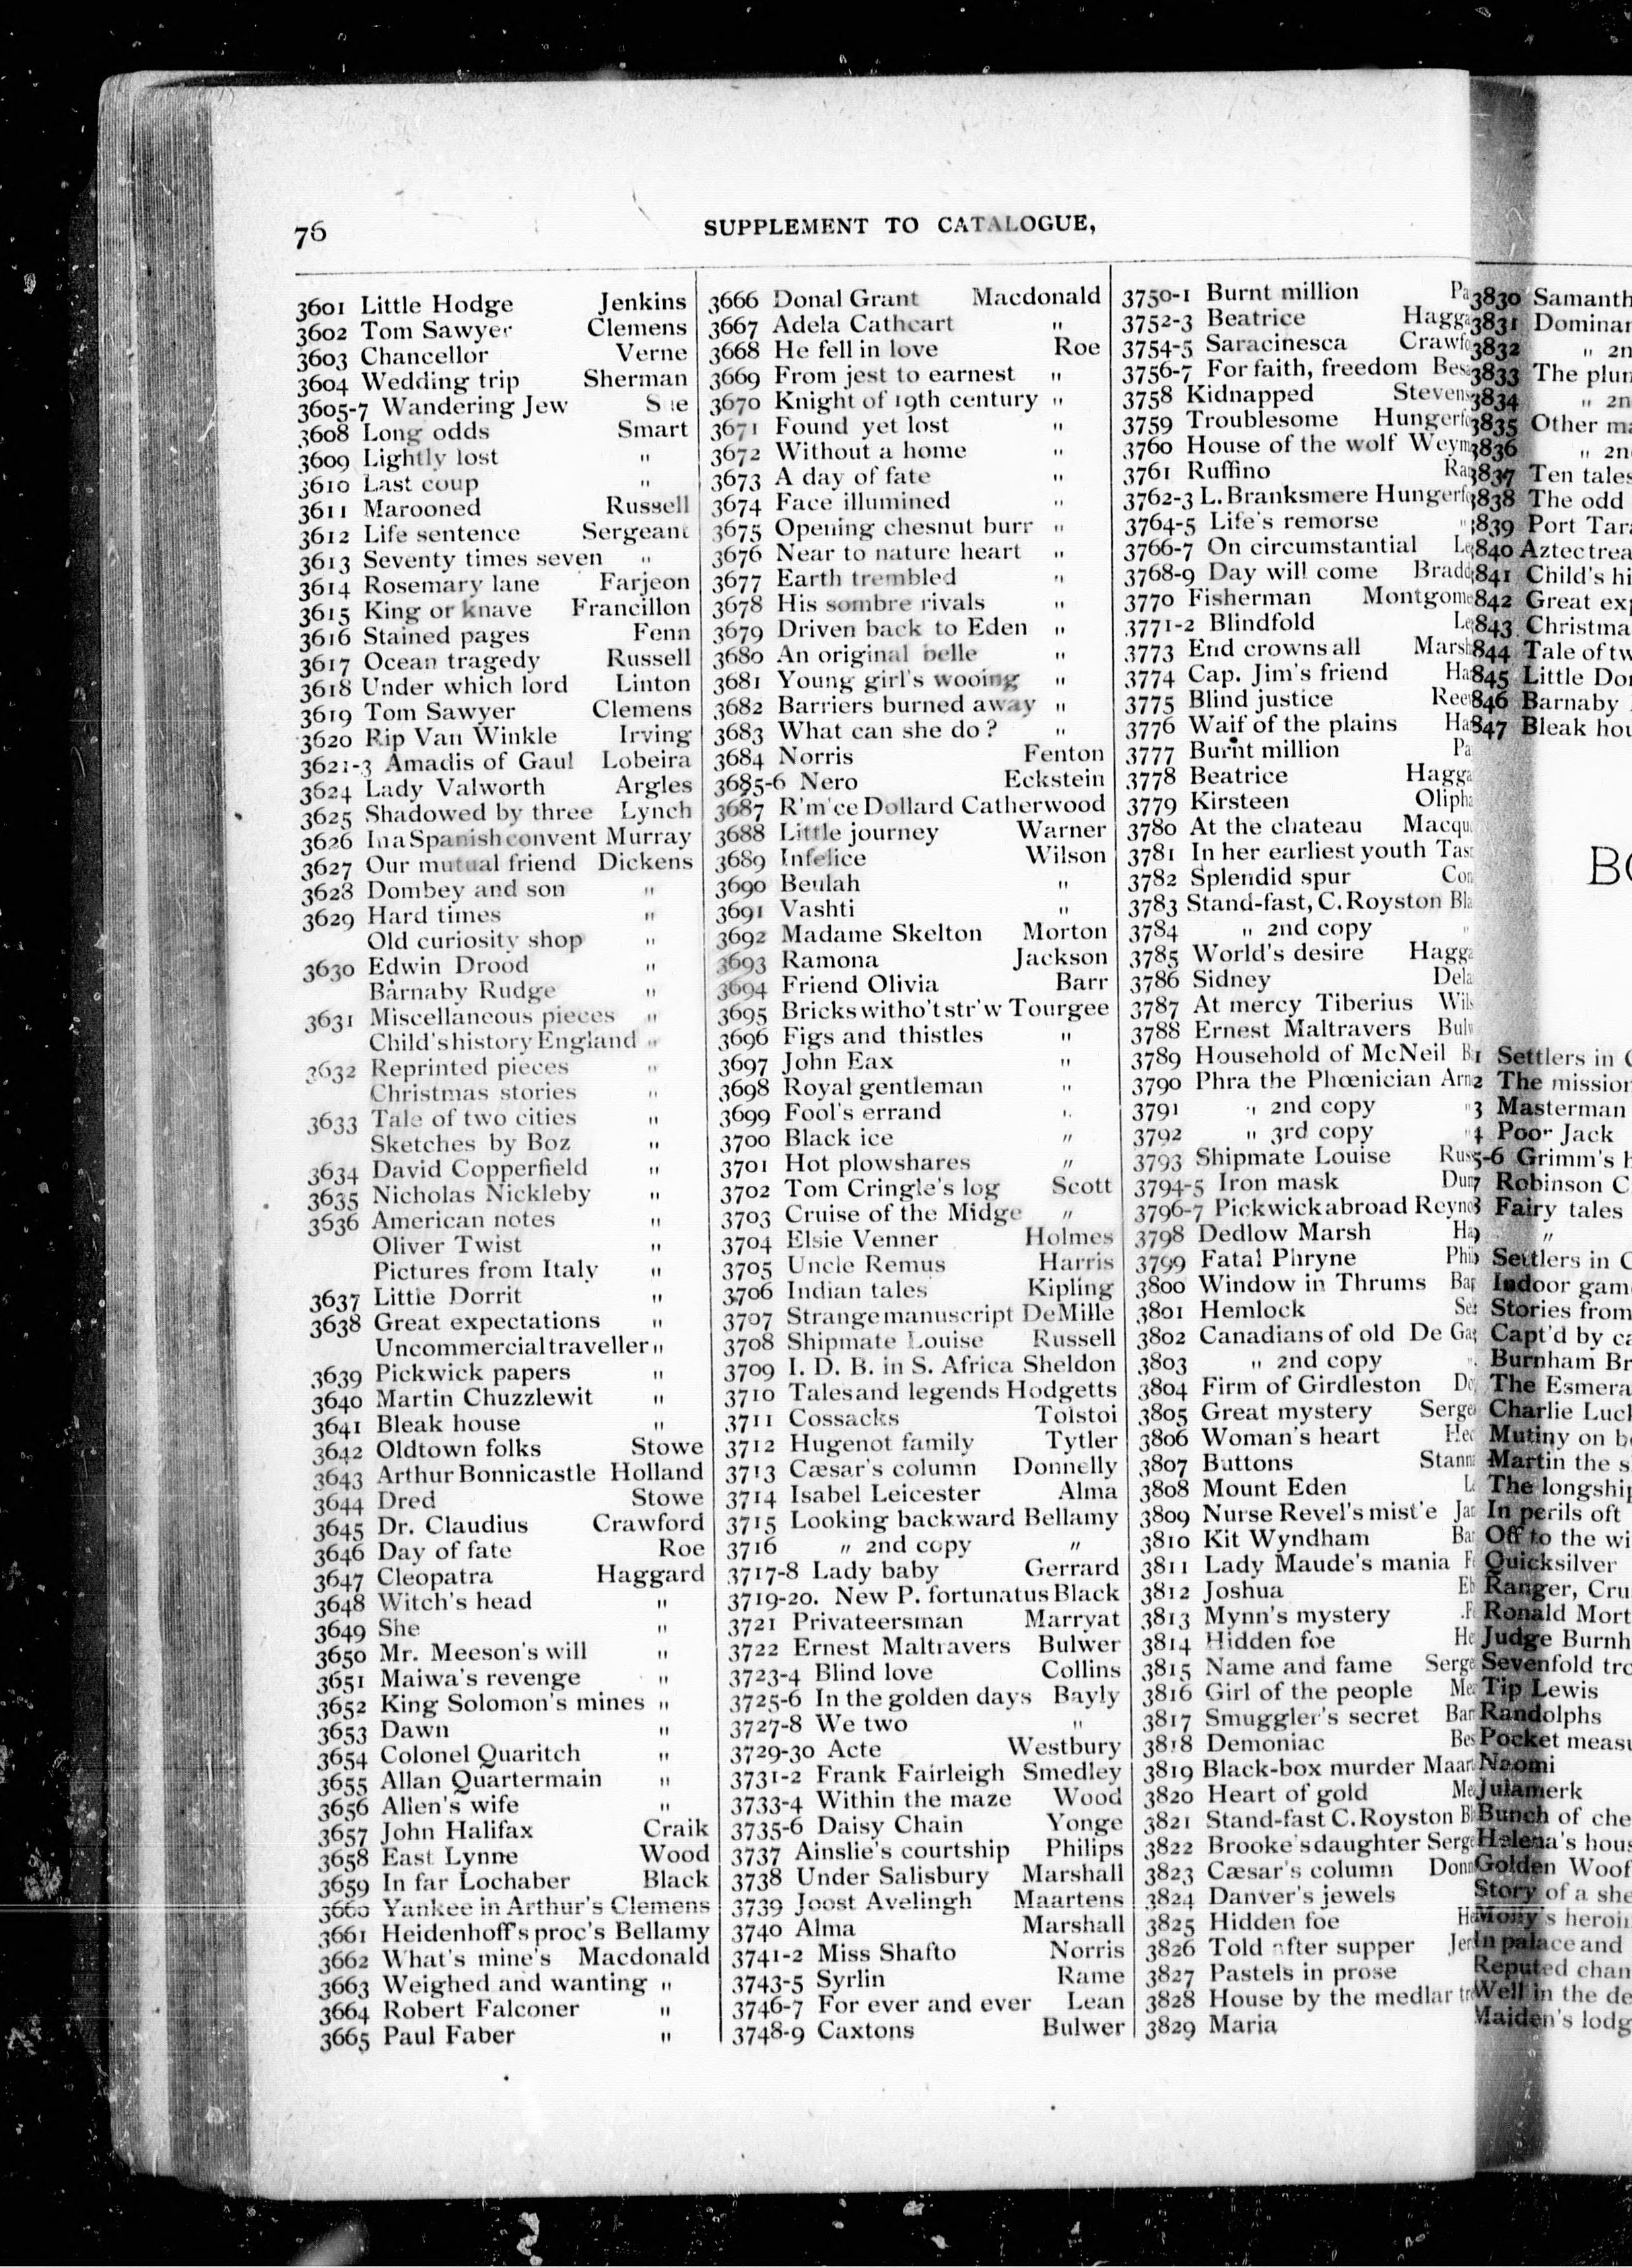 76
SUPPLEMENT TO CATALOGUE,
3601 Little Hodge Jenkins
3602 Tom Sawyer Clemens
3603 Chancellor Verne
3604 Wedding trip Sherman
3605-7 Wandering Jew S e
3608 Long odds Smart
3609 Lightly lost "
3610 Last coup "
3611 Marooned Russell
3612 Life sentence Sergeant
3613 Seventy times seven "
3614 Rosemary lane Farjeon
3615 King or knave Francillon
3616 Stained pages Fenn
3617 Ocean tragedy Russell
3618 Under which lord Linton
3619 Tom Sawyer Clemens
3620 Rip Van Winkle Irving
3621-3 Amadis of Gaul Lobeira
3624 Lady Valworth Argles
3625 Shadowed by three Lynch
3626 In a Spanish convent Murray
3627 Our mutual friend Dickens
3628 Dombey and son "
3629 Hard times "
Old curiosity shop "
3630 Edwin Drood "
Barnaby Rudge "
3631 Miscellaneous pieces "
Child's history England "
3632 Reprinted pieces "
Christmas stories "
3633 Tale of two cities "
Sketches by Boz "
3634 David Copperfield "
3635 Nicholas Nickleby "
3636 American notes "
Oliver Twist "
Pictures from Italy "
3637 Little Dorrit "
3638 Great expectations "
Uncommercial traveller "
3639 Pickwick papers "
3640 Martin Chuzzlewit "
3641 Bleak house "
3642 Oldtown folks Stowe
3643 Arthur Bonnicastle Holland
3644 Dred Stowe
3645 Dr. Claudius Crawford
3646 Day of fate Roe
3647 Cleopatra Haggard
3648 Witch's head "
3649 She "
3650 Mr. Meeson's will "
3651 Maiwa's revenge "
3652 King Solomon's mines "
3653 Dawn "
3654 Colonel Quaritch "
3655 Allan Quartermain "
3656 Allen's wife "
3657 John Halifax Craik
3658 East Lynne Wood
3659 In far Lochaber Black
3660 Yankee in Arthur's Clemens
3661 Heidenhoff's proc's Bellamy
3662 What's mine's Macdonald
3663 Weighed and wanting "
3664 Robert Falconer "
3665 Paul Faber "
3666 Donal Grant Macdonald
3667 Adela Cathcart "
3668 He fell in love Roe
3669 From jest to earnest "
3670 Knight of 19th century "
3671 Found yet lost "
3672 Without a home "
3673 A day of fate "
3674 Face illumined "
3675 Opening chesnut burr "
3676 Near to nature heart "
3677 Earth trembled "
3678 His sombre rivals "
3679 Driven back to Eden "
3680 An original belle "
3681 Young girl's wooing "
3682 Barriers burned away "
3683 What can she do? "
3684 Norris Fenton
3685-6 Nero Eckstein
3687 R'm'ce Dollard Catherwood
3688 Little journey Warner
3689 Infelice Wilson
3690 Beulah "
3691 Vashti "
3692 Madame Skelton Morton
3693 Ramona Jackson
3694 Friend Olivia Barr
3695 Bricks witho't str'w Tourgee
3696 Figs and thistles "
3697 John Eax "
3698 Royal gentleman "
3699 Fool's errand "
3700 Black ice "
3701 Hot plowshares "
3702 Tom Cringle's log Scott
3703 Cruise of the Midge "
3704 Elsie Venner Holmes
3705 Uncle Remus Harris
3706 Indian tales Kipling
3707 Strange manuscript DeMille
3708 Shipmate Louise Russell
3709 I. D. B. in S. Africa Sheldon
3710 Tales and legends Hodgetts
3711 Cossacks Tolstoi
3712 Hugenot family Tytler
3713 Cæsar's column Donnelly
3714 Isabel Leicester Alma
3715 Looking backward Bellamy
3716 " 2nd copy "
3717-8 Lady baby Gerrard
3719-20. New P. fortunatus Black
3721 Privateersman Marryat
3722 Ernest Maltravers Bulwer
3723-4 Blind love Collins
3725-6 In the golden days Bayly
3727-8 We two "
3729-30 Acte Westbury
3731-2 Frank Fairleigh Smedley
3733-4 Within the maze Wood
3735-6 Daisy Chain Yonge
3737 Ainslie's courtship Philips
3738 Under Salisbury Marshall
3739 Joost Avelingh Maartens
3740 Alma Marshall
3741-2 Miss Shafto Norris
3743-5 Syrlin Rame
3746-7 For ever and ever Lean
3748-9 Caxtons Bulwer
3750-1 Burnt million Pa
3752-3 Beatrice Hagga
3754-5 Saracinesca Crawfo
3756-7 For faith, freedom Bes
3758 Kidnapped Stevens
3759 Troublesome Hungerfo
3760 House of the wolf Weym
3761 Ruffino Ra
3762-3 L. Branksmere Hungerfo
3764-5 Life's remorse "
3766-7 On circumstantial Le
3768-9 Day will come Bradd
3770 Fisherman Montgome
3771-2 Blindfold Le
3773 End crowns all Marsh
3774 Cap. Jim's friend Ha
3775 Blind justice Ree
3776 Waif of the plains Ha
3777 Burnt million Pa
3778 Beatrice Hagga
3779 Kirsteen Olipha
3780 At the chateau Macqu
3781 In her earliest youth Tas
3782 Splendid spur Con
3783 Stand-fast, C. Royston Bla
3784 " 2nd copy "
3785 World's desire Hagga
3786 Sidney Dela
3787 At mercy Tiberius Wils
3788 Ernest Maltravers Bulw
3789 Household of McNeil B
3790 Phra the Phœnician Arn
3791 " 2nd copy "
3792 " 3rd copy "
3793 Shipmate Louise Russ
3794-5 Iron mask Dum
3796-7 Pickwick abroad Reyno
3798 Dedlow Marsh Ha
3799 Fatal Phryne Phi
3800 Window in Thrums Ba
3801 Hemlock Se
3802 Canadians of old De Ga
3803 " 2nd copy "
3804 Firm of Girdleston Do
3805 Great mystery Serge
3806 Woman's heart Hec
3807 Buttons Stann
3808 Mount Eden L
3809 Nurse Revel's mist'e Ja
3810 Kit Wyndham Bar
3811 Lady Maude's mania F
3812 Joshua Eb
3813 Mynn's mystery F
3814 Hidden foe He
3815 Name and fame Serge
3816 Girl of the people Me
3817 Smuggler's secret Bar
3818 Demoniac Bes
3819 Black-box murder Maart
3820 Heart of gold Me
3821 Stand-fast C. Royston Bl
3822 Brooke's daughter Serge
3823 Cæsar's column Donn
3824 Danver's jewels
3825 Hidden foe He
3826 Told after supper Jer
3827 Pastels in prose
3828 House by the medlar tr
3829 Maria
3830 Samanth
3831 Dominan
3832 " 2n
3833 The plun
3834 " 2n
3835 Other ma
3836 " 2n
3837 Ten tales
3838 The odd
3839 Port Tara
840 Aztec trea
841 Child's hi
842 Great exp
843 Christma
844 Tale of tw
845 Little Dor
846 Barnaby
847 Bleak hou
BO
1 Settlers in C
2 The mission
3 Masterman
4 Poor Jack
5-6 Grimm's h
7 Robinson C
8 Fairy tales
"
Settlers in C
Indoor game
Stories from
Capt'd by ca
Burnham Br
The Esmera
Charlie Luck
Mutiny on bo
Martin the s
The longship
In perils oft
Off to the wi
Quicksilver
Ranger, Cru
Ronald Mort
Judge Burnh
Sevenfold tro
Tip Lewis
Randolphs
Pocket measu
Naomi
Julamerk
Bunch of che
Helena's hous
Golden Woof
Story of a she
Molly's heroin
In palace and
Reputed chan
Well in the de
Maiden's lodg